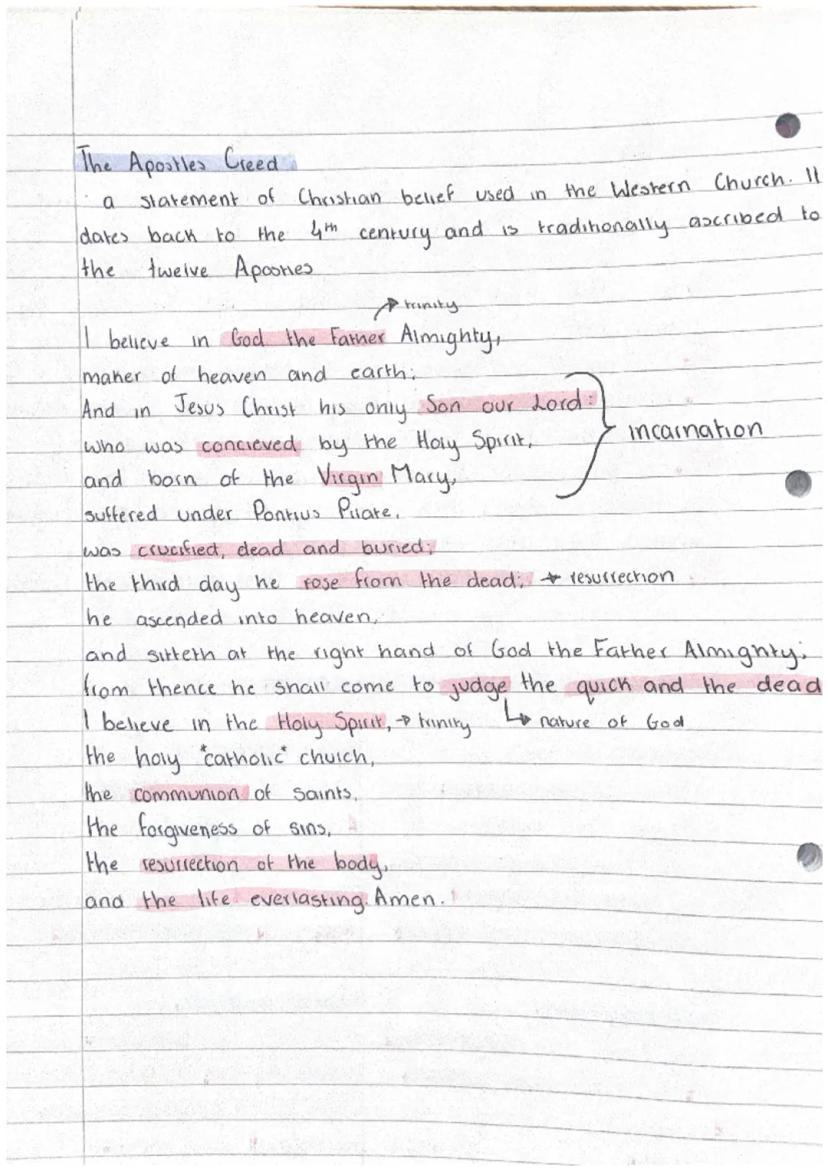 The Apostles Creed
a statement of Christian belief used in the Western Church. It
dates back to the 4th century and is traditionally ascribed to
the twelve Apostles
→ trinity
I believe in God the Father Almighty,
maker of heaven and earth;
And in Jesus Christ his only Son our Lord:
who was concieved by the Holy Spirit,
incarnation
and born of the Virgin Mary,
suffered under Pontius Pilate,
was crucified, dead and buried;
the third day he rose from the dead; → resurrection
he ascended into heaven,
and sitteth at the right hand of God the Father Almighty;
from thence he shall come to judge the quick and the dead
I believe in the Holy Spirit, → trinity ↳ nature of God
the holy *catholic* church,
the communion of saints,
the forgiveness of sins,
the resurrection of the body,
and the life everlasting. Amen.